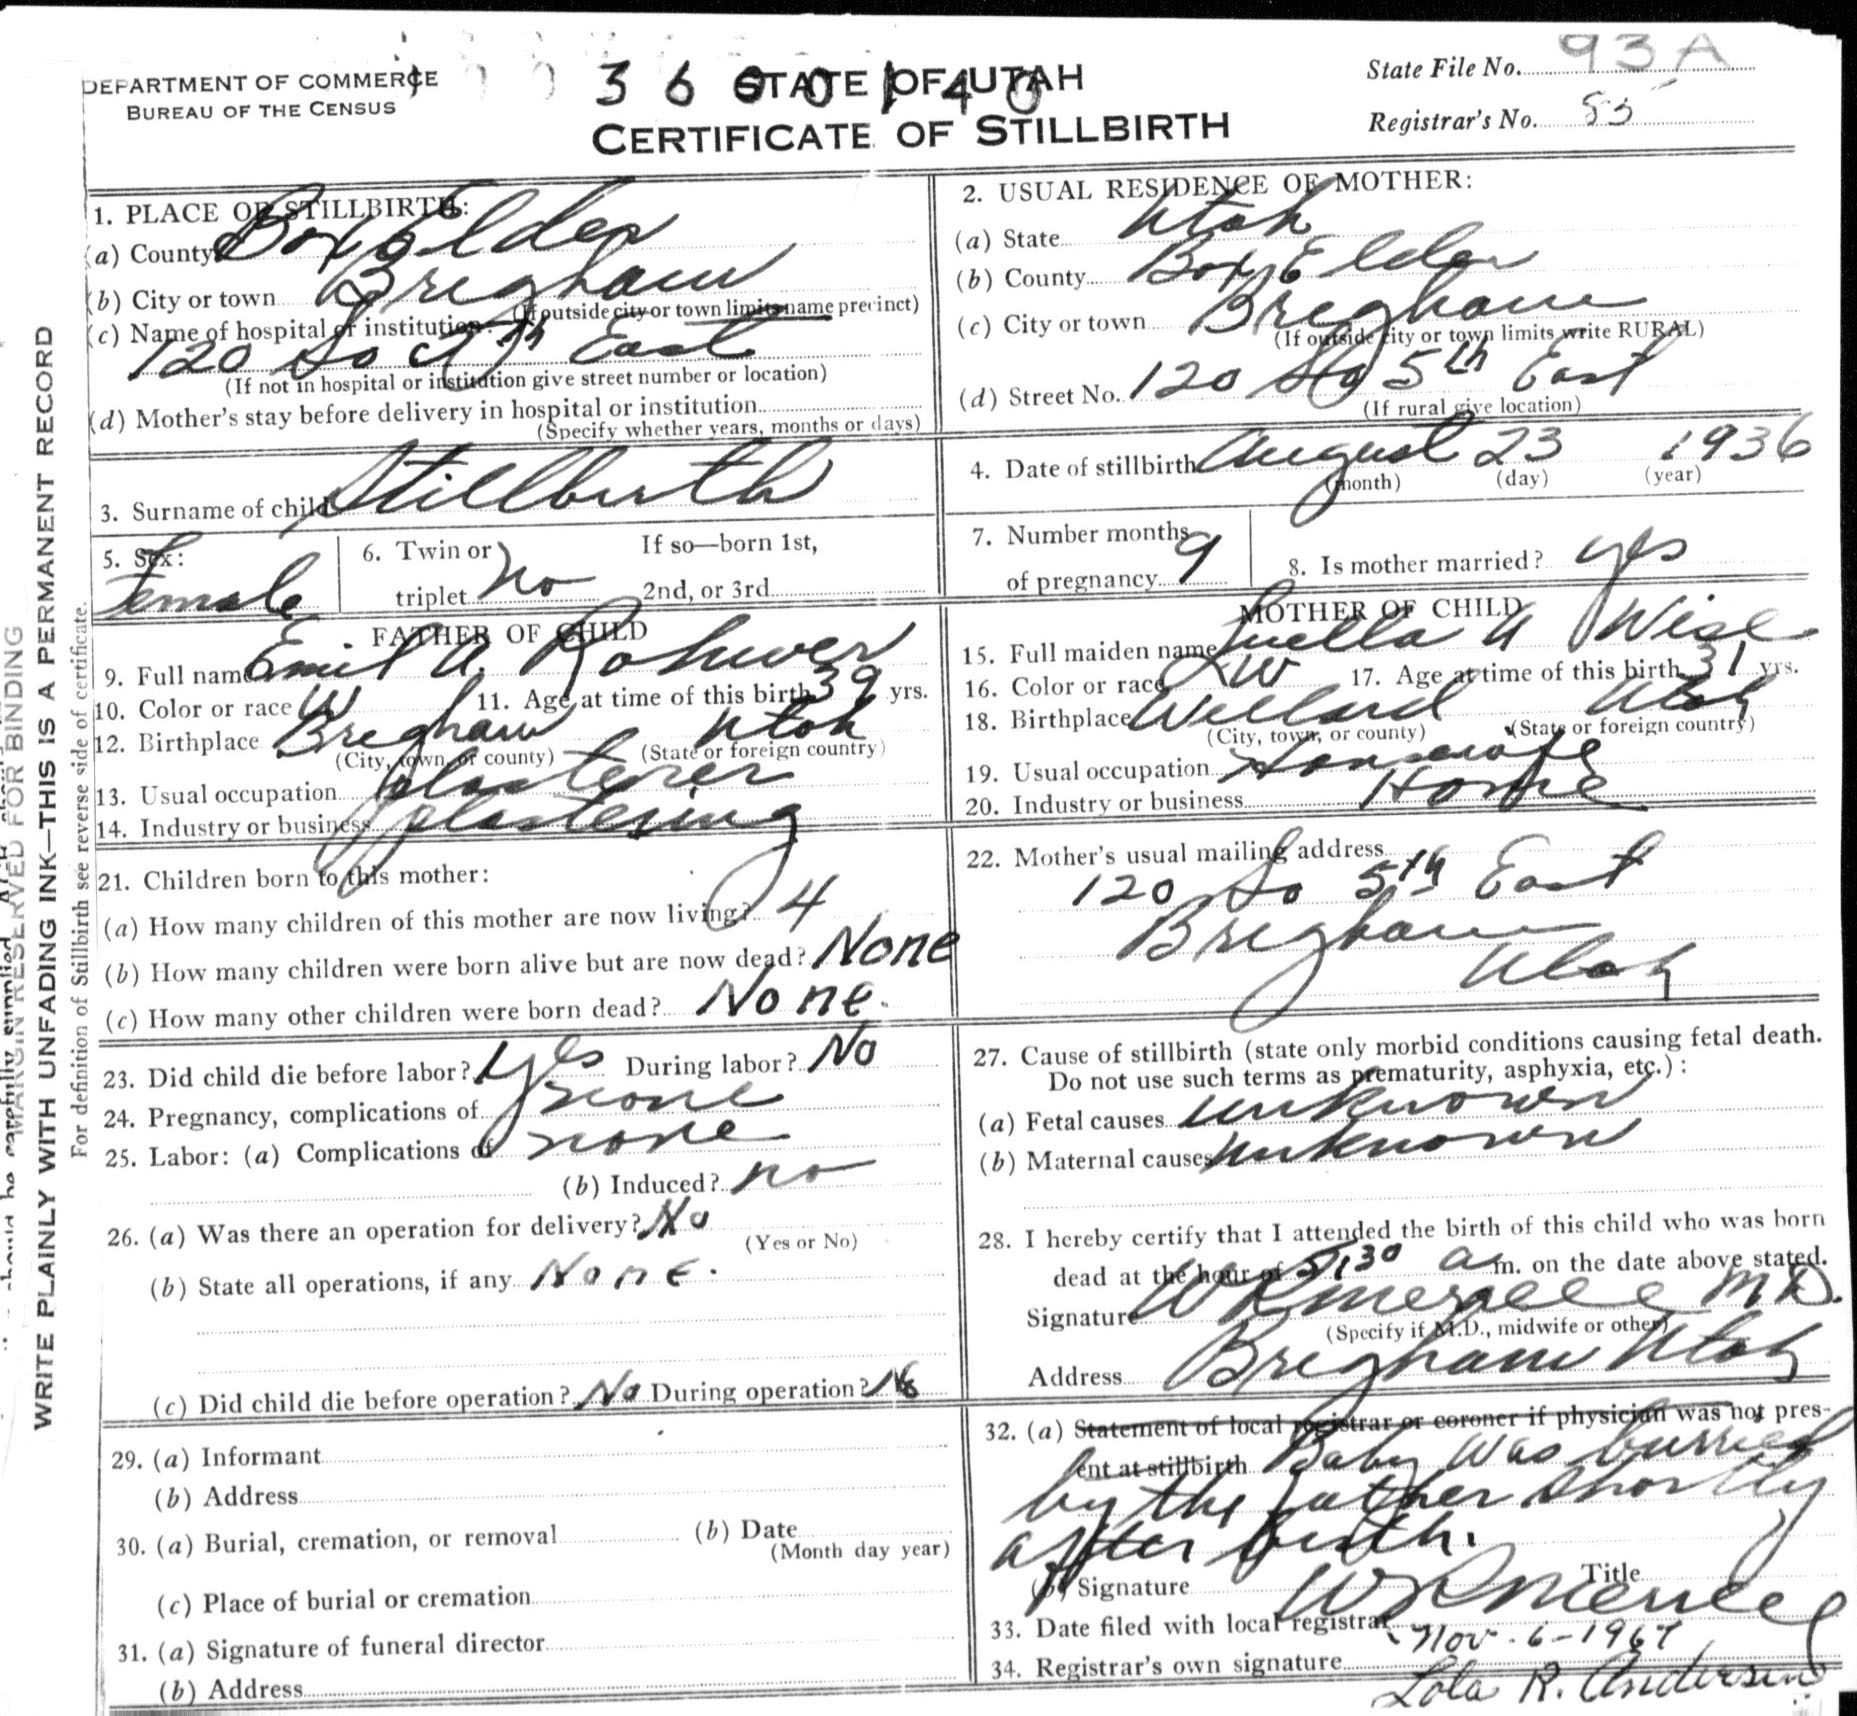 DEPARTMENT OF COMMERCE
BUREAU OF THE CENSUS
3 6 0 0 1 4 0
STATE OF UTAH
CERTIFICATE OF STILLBIRTH
State File No. 93A
Registrar's No. 83
1. PLACE OF STILLBIRTH:
(a) County Box Elder
(b) City or town Brigham
(If outside city or town limits name precinct)
(c) Name of hospital or institution
120 So 5th East
(If not in hospital or institution give street number or location)
(d) Mother's stay before delivery in hospital or institution
(Specify whether years, months or days)
2. USUAL RESIDENCE OF MOTHER:
(a) State Utah
(b) County Box Elder
(c) City or town Brigham
(If outside city or town limits write RURAL)
(d) Street No. 120 So 5th East
(If rural give location)
3. Surname of child Stillbirth
4. Date of stillbirth August 23 1936
(month) (day) (year)
5. Sex: Female
6. Twin or triplet No
If so—born 1st, 2nd, or 3rd
7. Number months of pregnancy 9
8. Is mother married? yes
FATHER OF CHILD
9. Full name Emil A. Rohwer
10. Color or race W 11. Age at time of this birth 39 yrs.
12. Birthplace Brigham Utah
(City, town, or county) (State or foreign country)
13. Usual occupation plasterer
14. Industry or business plastering
MOTHER OF CHILD
15. Full maiden name Luella A Wise
16. Color or race W 17. Age at time of this birth 31 yrs.
18. Birthplace Willard Utah
(City, town, or county) (State or foreign country)
19. Usual occupation Housewife
20. Industry or business Home
21. Children born to this mother:
(a) How many children of this mother are now living? 4
(b) How many children were born alive but are now dead? None
(c) How many other children were born dead? None.
22. Mother's usual mailing address
120 So 5th East
Brigham
Utah
23. Did child die before labor? Yes During labor? No
24. Pregnancy, complications of none
25. Labor: (a) Complications of none
(b) Induced? no
26. (a) Was there an operation for delivery? No
(Yes or No)
(b) State all operations, if any None.
(c) Did child die before operation? No During operation? No
27. Cause of stillbirth (state only morbid conditions causing fetal death.
Do not use such terms as prematurity, asphyxia, etc.):
(a) Fetal causes unknown
(b) Maternal causes unknown
28. I hereby certify that I attended the birth of this child who was born
dead at the hour of 5:30 a m. on the date above stated.
Signature W R Merrell M.D.
(Specify if M.D., midwife or other)
Address Brigham Utah
29. (a) Informant
(b) Address
30. (a) Burial, cremation, or removal (b) Date
(Month day year)
(c) Place of burial or cremation
31. (a) Signature of funeral director
(b) Address
32. (a) Statement of local registrar or coroner if physician was not pres-
ent at stillbirth Baby was burried
by the father shortly
after birth.
(b) Signature W R Merrell Title
33. Date filed with local registrar Nov. 6-1967
34. Registrar's own signature
Lola R. Anderson
MARGIN RESERVED FOR BINDING
WRITE PLAINLY WITH UNFADING INK—THIS IS A PERMANENT RECORD
For definition of Stillbirth see reverse side of certificate.
should be carefully supplied